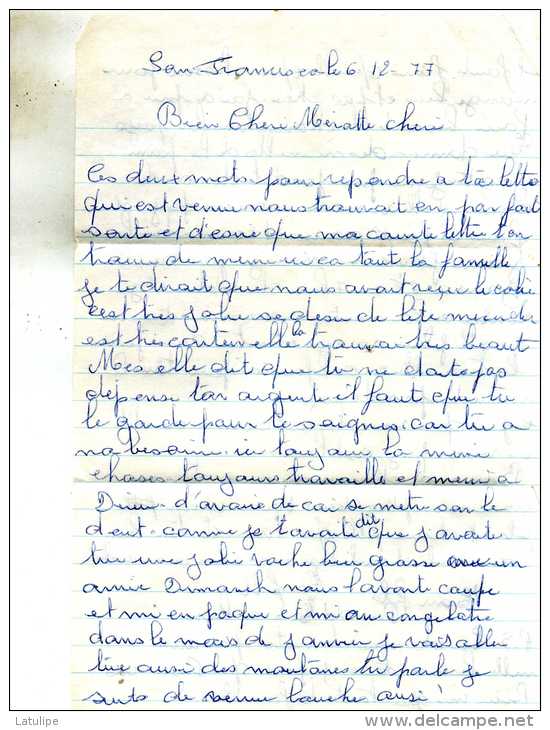 San Francisco le 6 12-77
Bien Cheri Meratte cheri
Ces deux mots pour repondre a ta lettre
qui est venue nous trouvait en parfait
sante et desire que ma cainte lettre t'en
trouve de meme ici ca tout la famille
je te dirait que nous avait recu le colie
c'est tres jolie de tite
est tres conten elle la trouvai tres beaut
Mes elle dit que tu ne doits pas
depense ton argente il faut que tu
le garde pour te saignes car tu a
na besoin. ici toujour la meme
choses toujours travaille et merci a
Dieu d'avoire de cai se metre sou le
dent. comme je t'avaite dit que j'avaite
tue une jolie vache bien grasse un
amie Dimanch nous l'avante coupe
et mi en paque et mi au congelatie
dans le mois de janvier je vais aller
tire ausi des montanes tu parle je
suits de venue bouche ausi!
Latulipe
www.delcampe.net